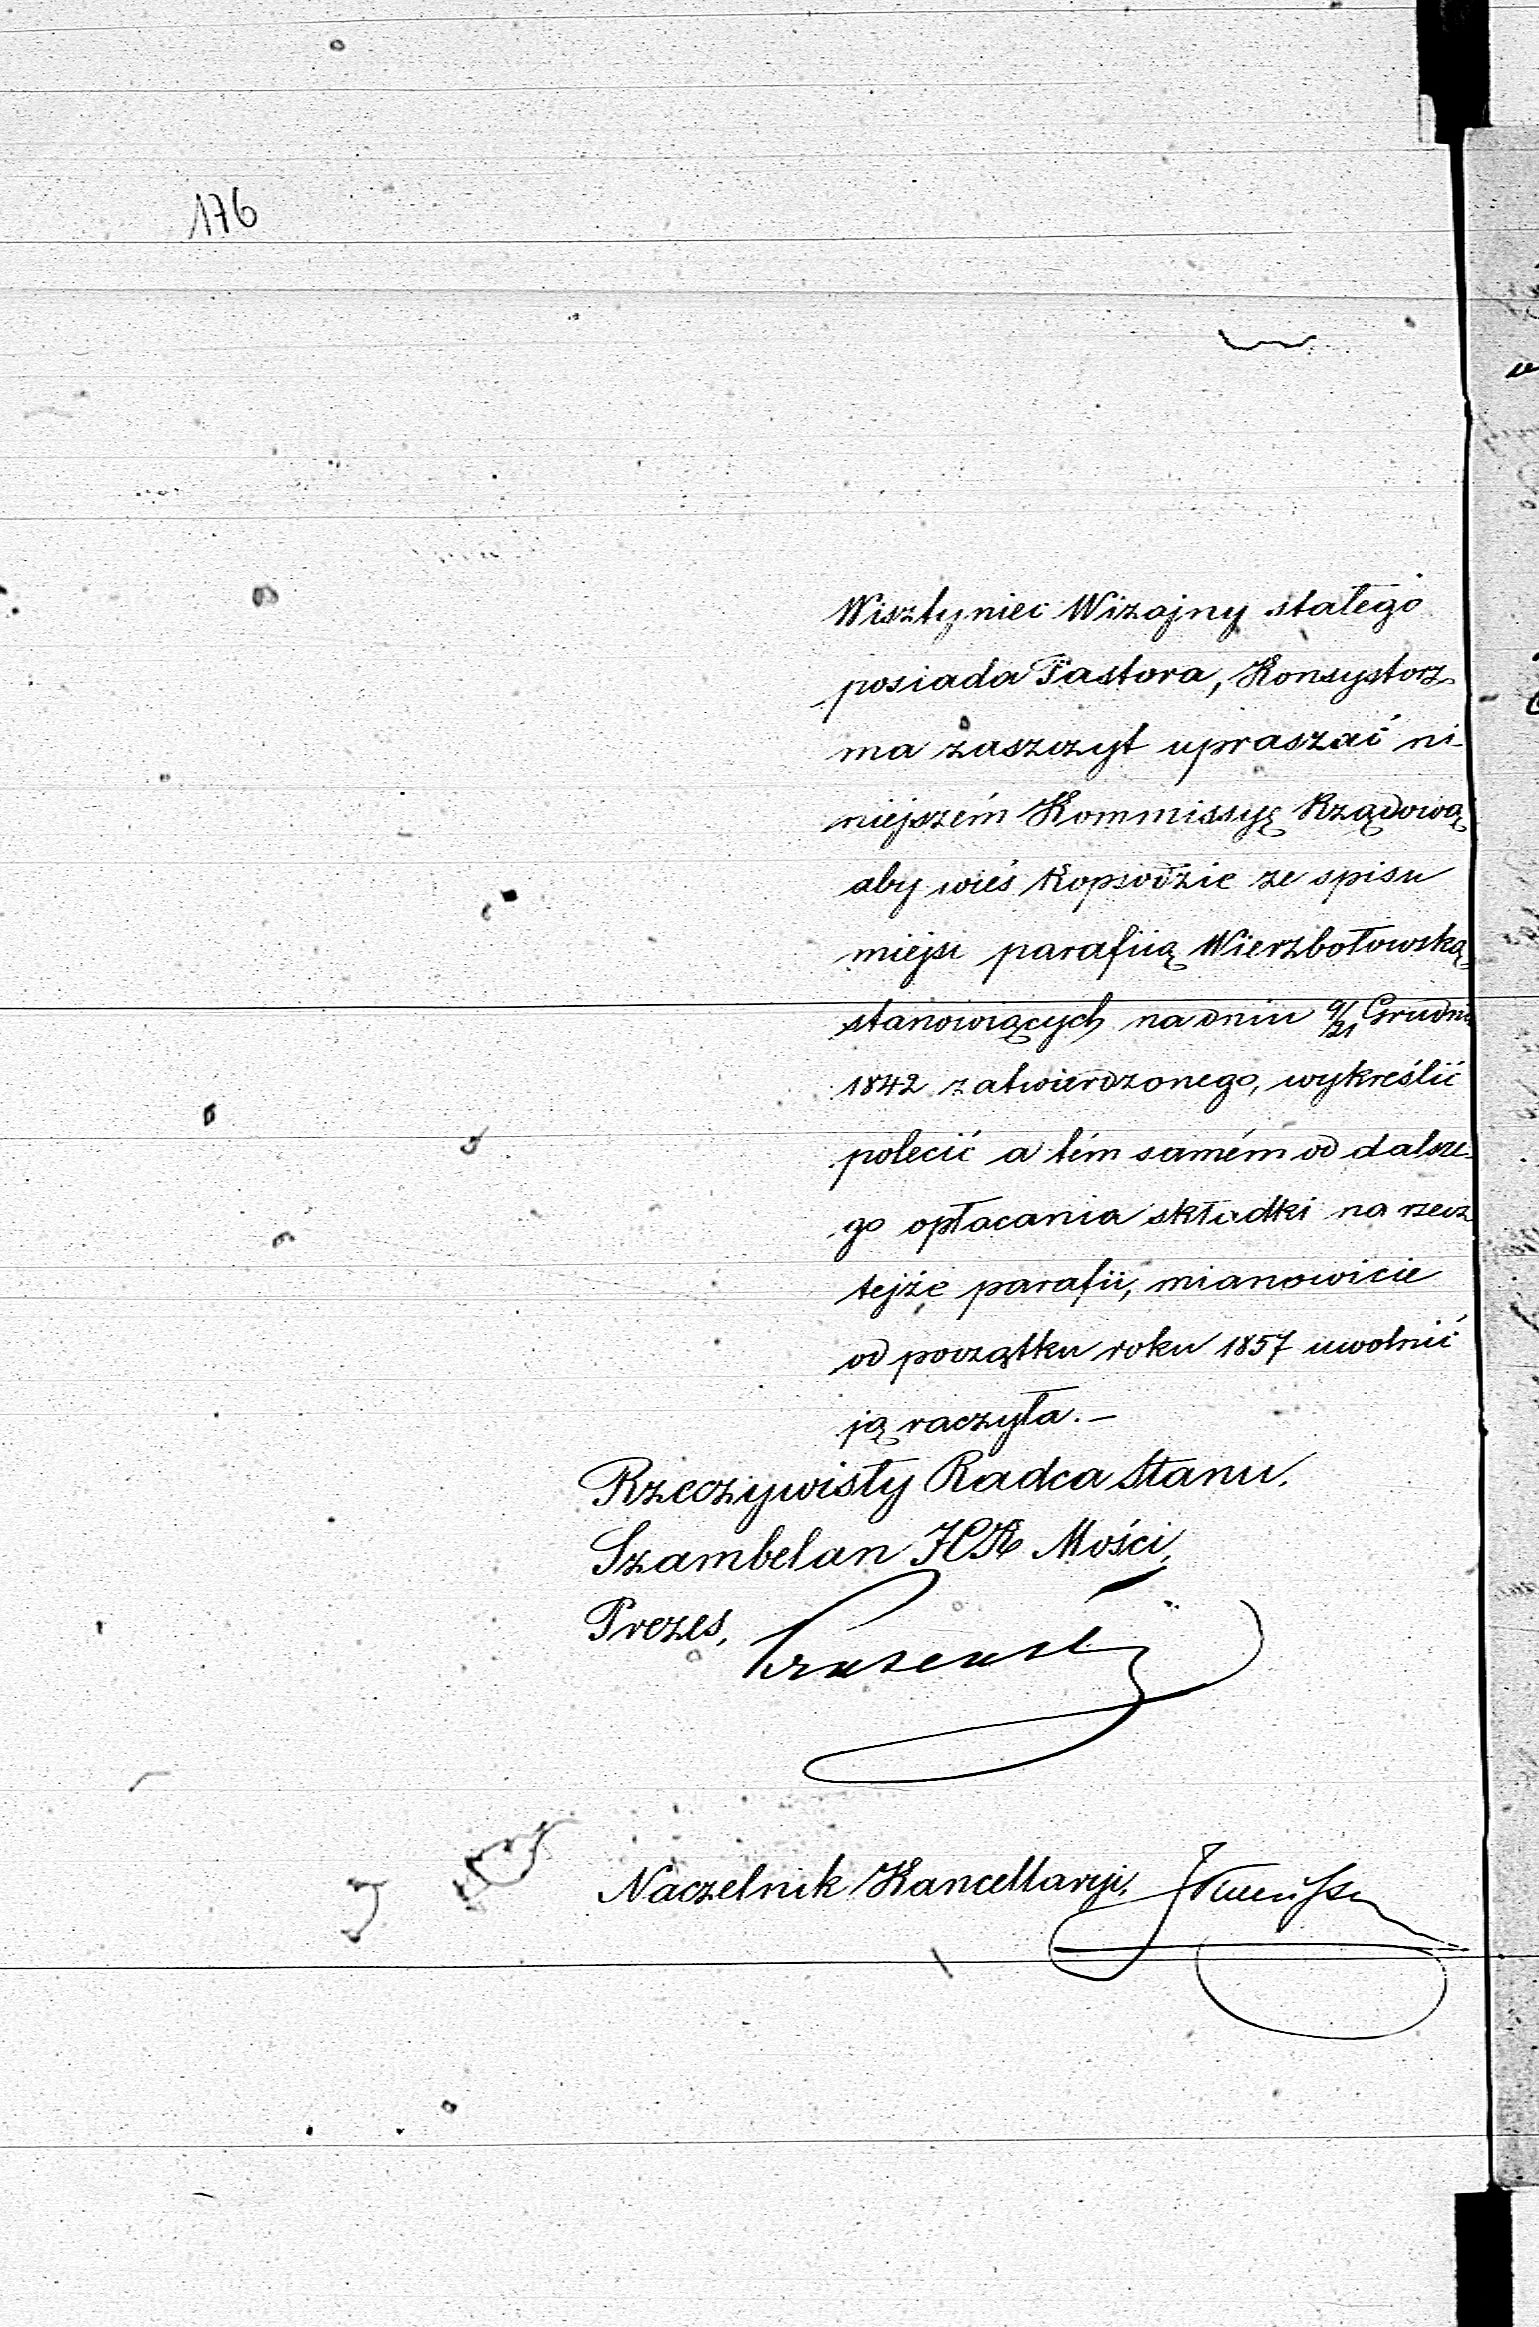 176
Wisztyniec Wizajny stałego
posiada Pastora, Konsystorz
ma zaszczyt upraszać ni-
niejszém Kommissyę Rządową
aby wieś Kopsodzie ze spisu
miejsc parafiią Wierzbołowską
stanowiących na dniu 9/21 Grudnia
1842 zatwierdzonego, wykreślić
polecić a tém samém od dalsze-
go opłacania składki na rzecz
tejże parafii, mianowicie
od początku roku 1857 uwolnić
ją raczyła. —
Rzeczywisty Radca Stanu,
Szambelan JCK Mości,
Prezes,
Naczelnik Kancellaryi,